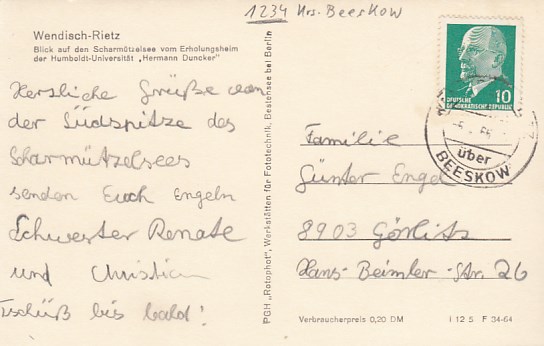 1234 Krs. Beeskow
Wendisch-Rietz
Blick auf den Scharmützelsee vom Erholungsheim
der Humboldt-Universität „Hermann Duncker"
Herzliche Grüße von
der Südspitze des
Scharmützelsees
senden Euch Engeln
Schwester Renate
und Christian
Tschüß bis bald!
PGH „Rotophot", Werkstätten für Fototechnik, Bestensee bei Berlin
10
DEUTSCHE
DEMOKRATISCHE REPUBLIK
über
BEESKOW
Familie
Günter Engel
8903 Görlitz
Hans-Beimler-Str. 26
Verbraucherpreis 0,20 DM
I 12 5 F 34-64